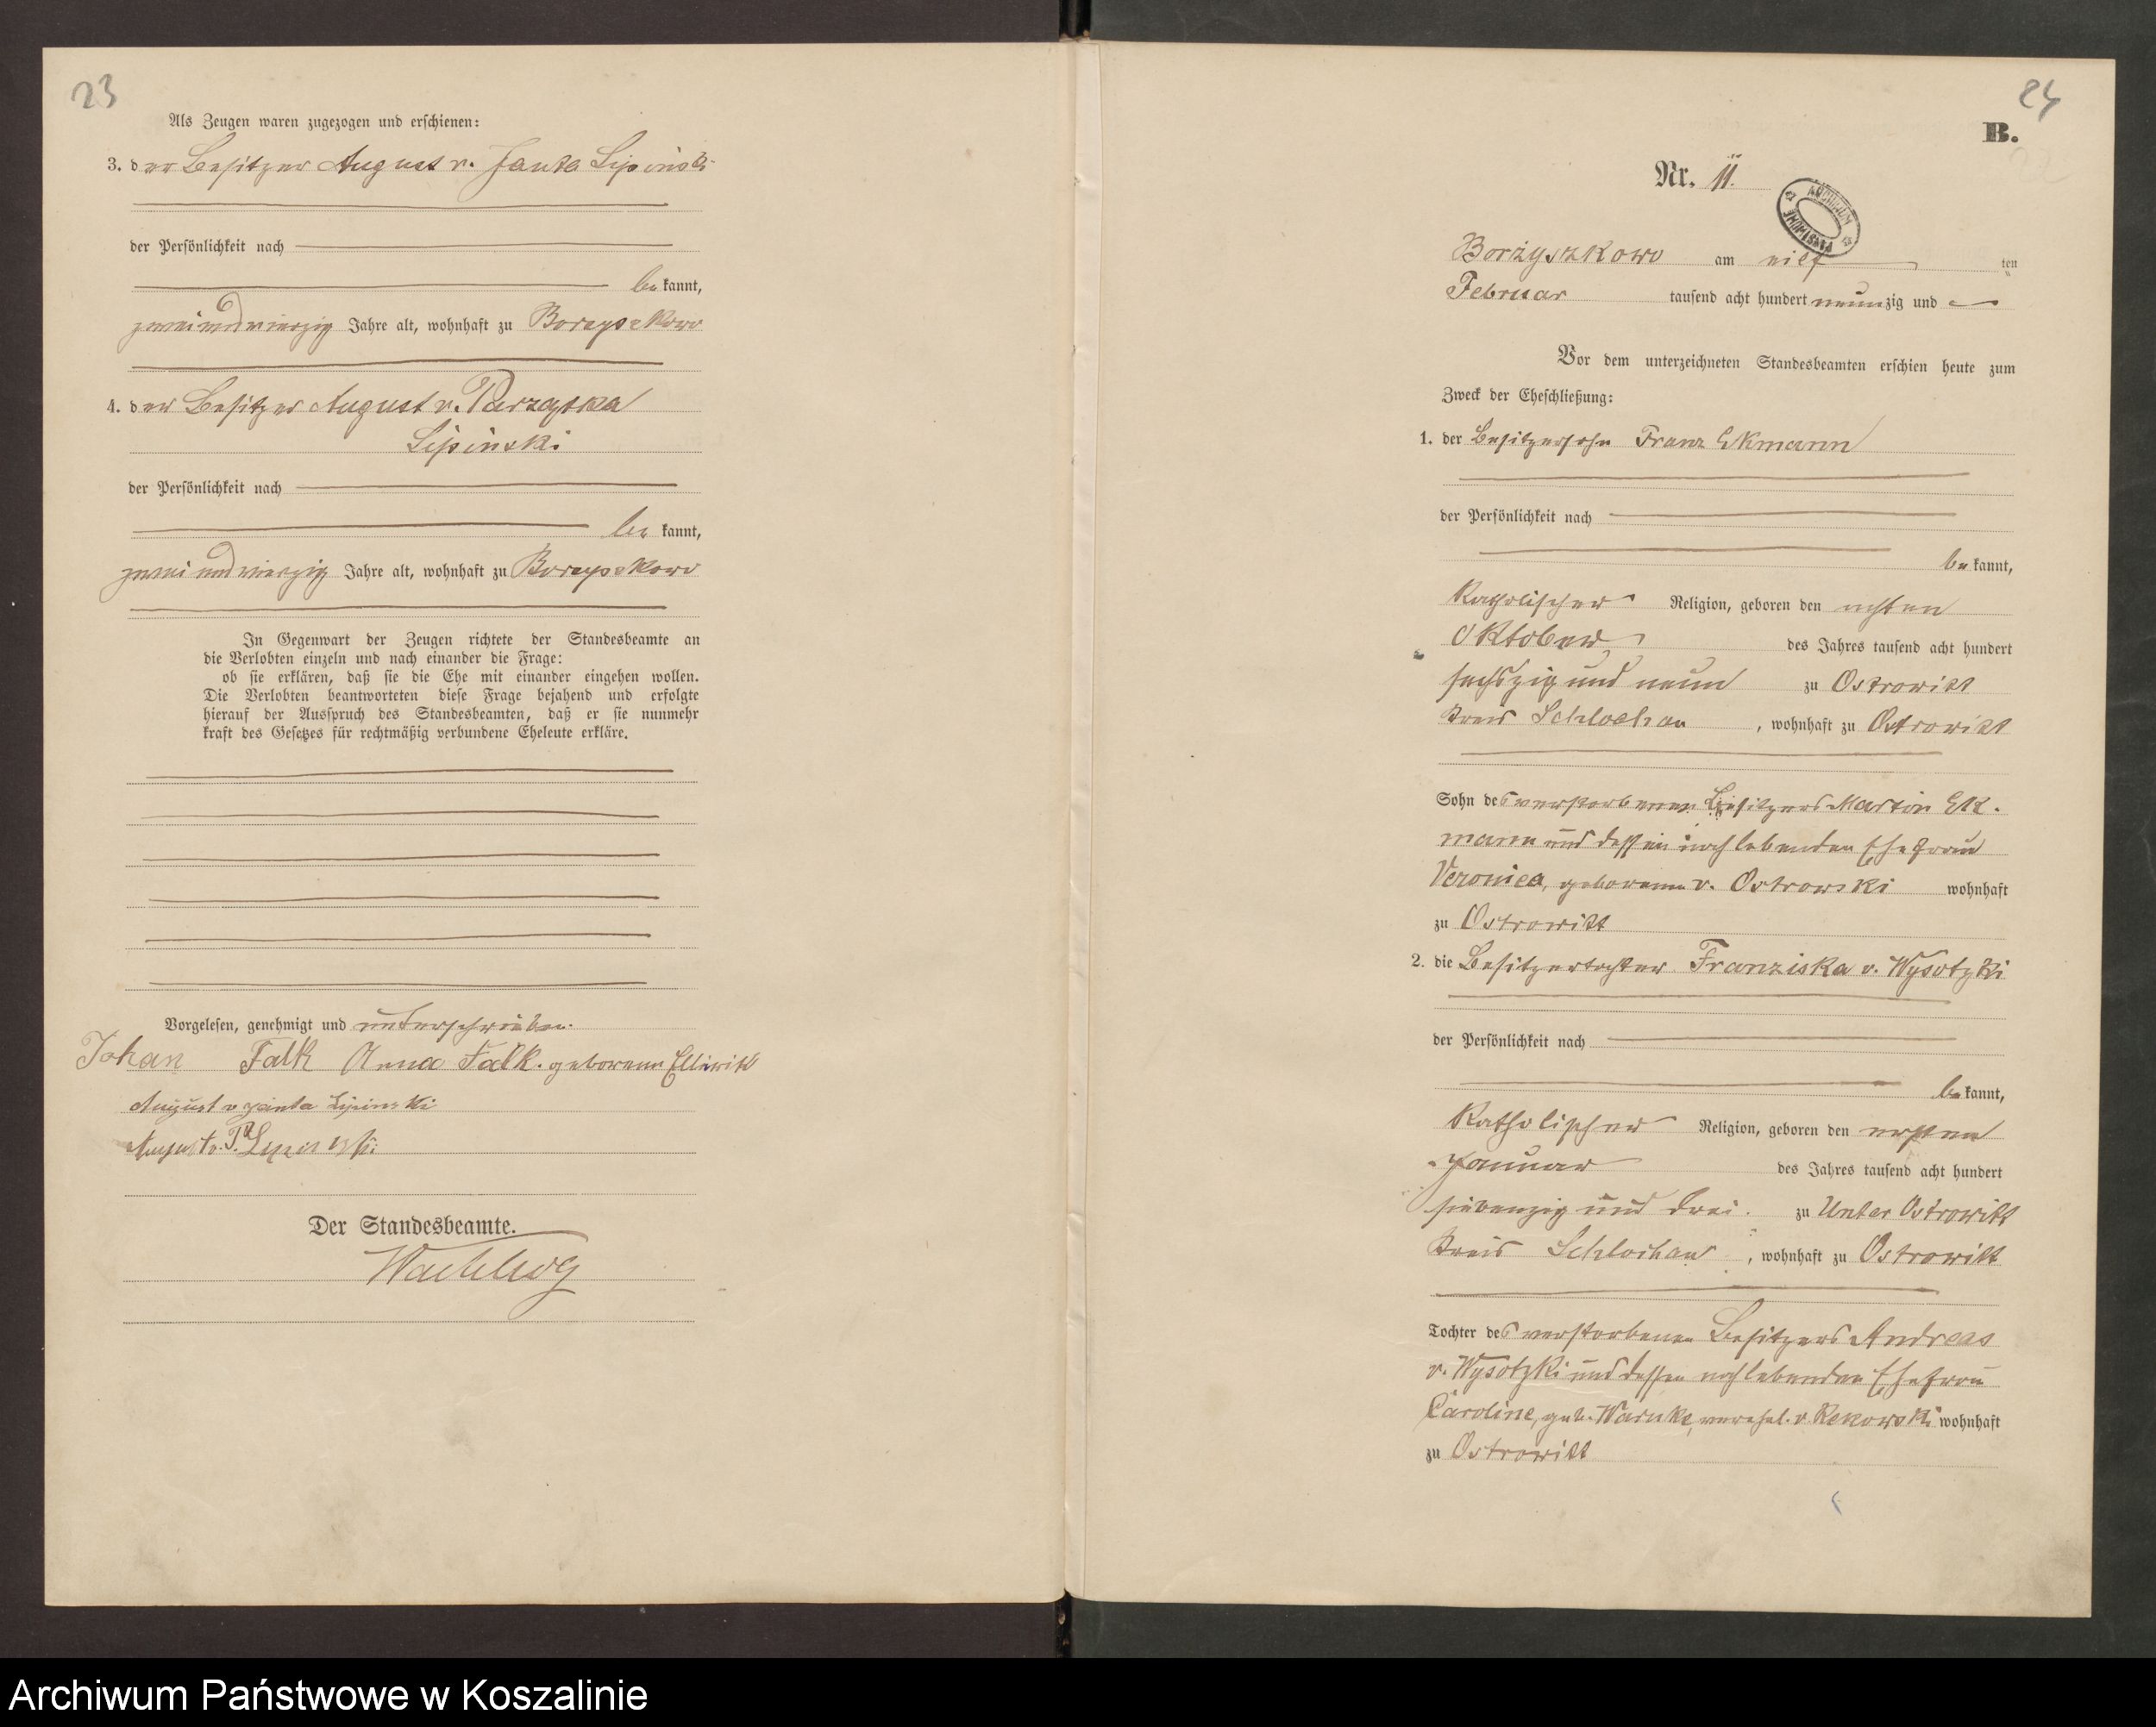 23
Als Zeugen waren zugezogen und erschienen:
3. der Besitzer August v. Janta Lipinski
der Persönlichkeit nach
be kannt,
zweiundvierzig Jahre alt, wohnhaft zu Borzyszkowo
4. der Besitzer August v.
Lipinski
der Persönlichkeit nach
be kannt,
zweiundvierzig Jahre alt, wohnhaft zu Borzyszkowo
In Gegenwart der Zeugen richtete der Standesbeamte an
die Verlobten einzeln und nach einander die Frage:
ob sie erklären, daß sie die Ehe mit einander eingehen wollen.
Die Verlobten beantworteten diese Frage bejahend und erfolgte
hierauf der Ausspruch des Standesbeamten, daß er sie nunmehr
kraft des Gesetzes für rechtmäßig verbundene Eheleute erkläre.
Vorgelesen, genehmigt und unterschrieben.
Johan Falk Anna Falk. geborene
August v Janta Lipinski
August v. P. Lipinski
Der Standesbeamte.
24
B.
Nr. 11.
ARCHIWUM PAŃSTWOWE
Borzyszkowo am eilf ten
Februar tausend acht hundert neunzig und
Vor dem unterzeichneten Standesbeamten erschien heute zum
Zweck der Eheschließung:
1. der Besitzersohn Franz Ekmann
der Persönlichkeit nach
be kannt,
Katholischer Religion, geboren den achten
Oktober des Jahres tausend acht hundert
sechszig und neun zu Ostrowitt
Kreis Schlochau, wohnhaft zu Ostrowitt
Sohn des verstorbenen Besitzers Martin Ek-
mann und dessen noch lebenden Ehefrau
Veronica, geborene v. Ostrowski wohnhaft
zu Ostrowitt
2. die Besitzertochter Franziska v. Wysotzki
der Persönlichkeit nach
be kannt,
Katholischer Religion, geboren den ersten
Januar des Jahres tausend acht hundert
siebenzig und drei. zu Unter Ostrowitt
Kreis Schlochau, wohnhaft zu Ostrowitt
Tochter des verstorbenen Besitzers Andreas
v. Wysotzki und dessen noch lebenden Ehefrau
Caroline, geb. Warnke, verehel. v. Rekowski wohnhaft
zu Ostrowitt
Archiwum Państwowe w Koszalinie